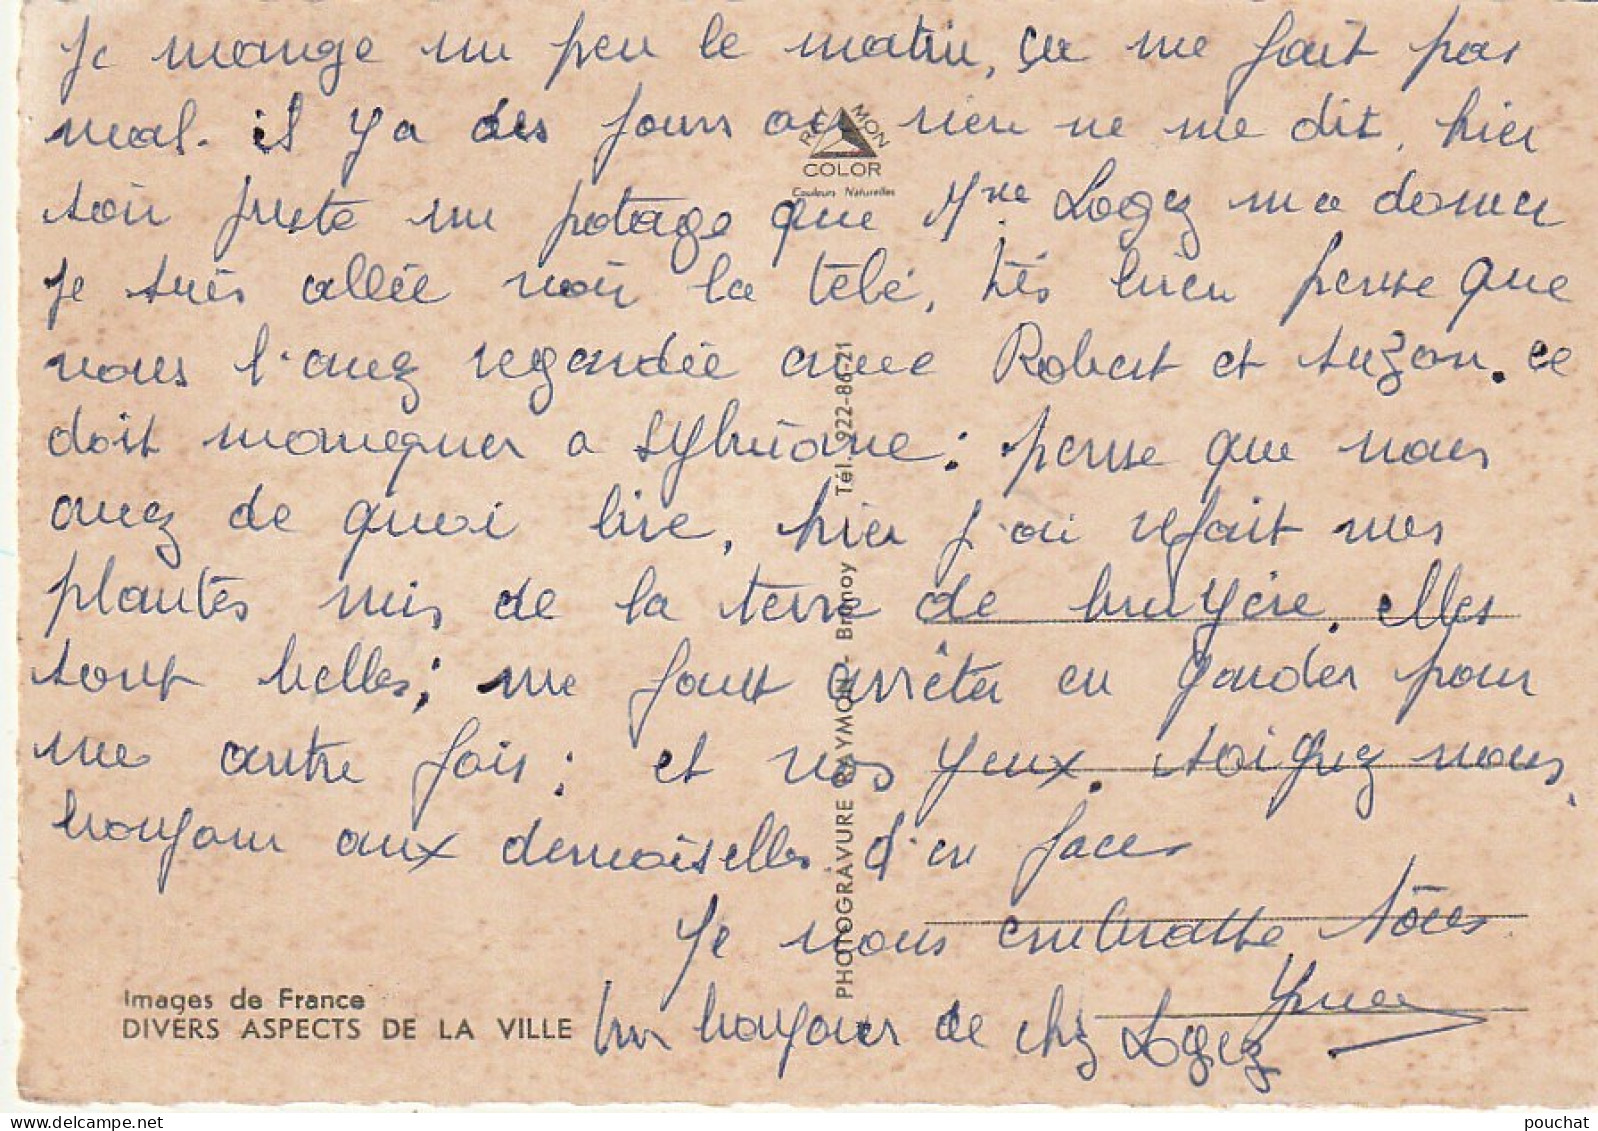 Je mange un peu le matin, ça me fait pas
mal. il y a des jours ou rien ne me dit, hier
soir juste un potage que Mme Logez m'a donner
je suis allée voir la télé, très bien pense que
vous l'avez regardée avec Robert et Suzon. ce
doit manquer a Sylviane : pense que vous
avez de quoi lire, hier j'ai refait mes
plantes mis de la terre de bruyère. elles
sont belles ; me faut arrêter en garder pour
une autre fois ; et vos yeux. soignez vous,
bonjour aux demoiselles d'en face
Je vous embrasse tous
Un bonjour de chez Logez
RAYMON
COLOR
Couleurs Naturelles
PHOTOGRAVURE RAYMON - Brunoy Tél. 922-86-21
Images de France
DIVERS ASPECTS DE LA VILLE
pouchat